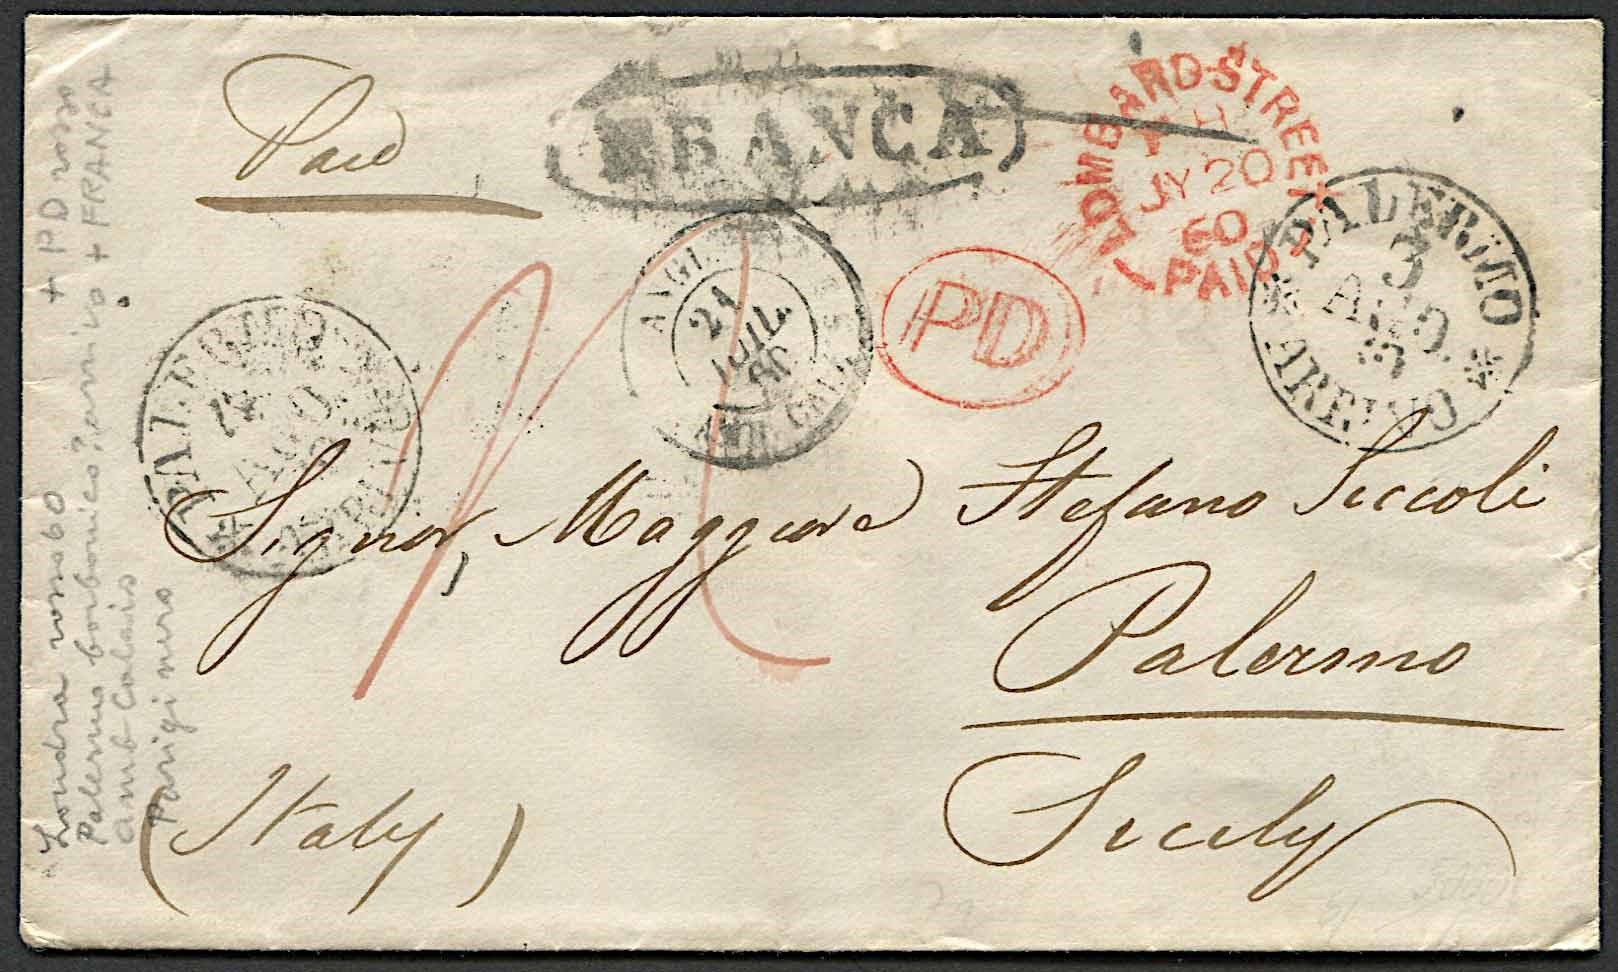 Paid
FRANCA
LOMBARD STREET
JY 20
60
PAID
PALERMO
3
AGO.
ARRIVO
ANGL.
21
JUIL.
60
AMB. CALAIS
PD
PALERMO
AGO.
ARRIVO
Signor Maggiore Stefano Siccoli
Palermo
Sicily
(Italy)
"Londra rosso 60 + PD rosso
Palermo borbonico? arrivo + FRANCA
amb Calais
Parigi nero